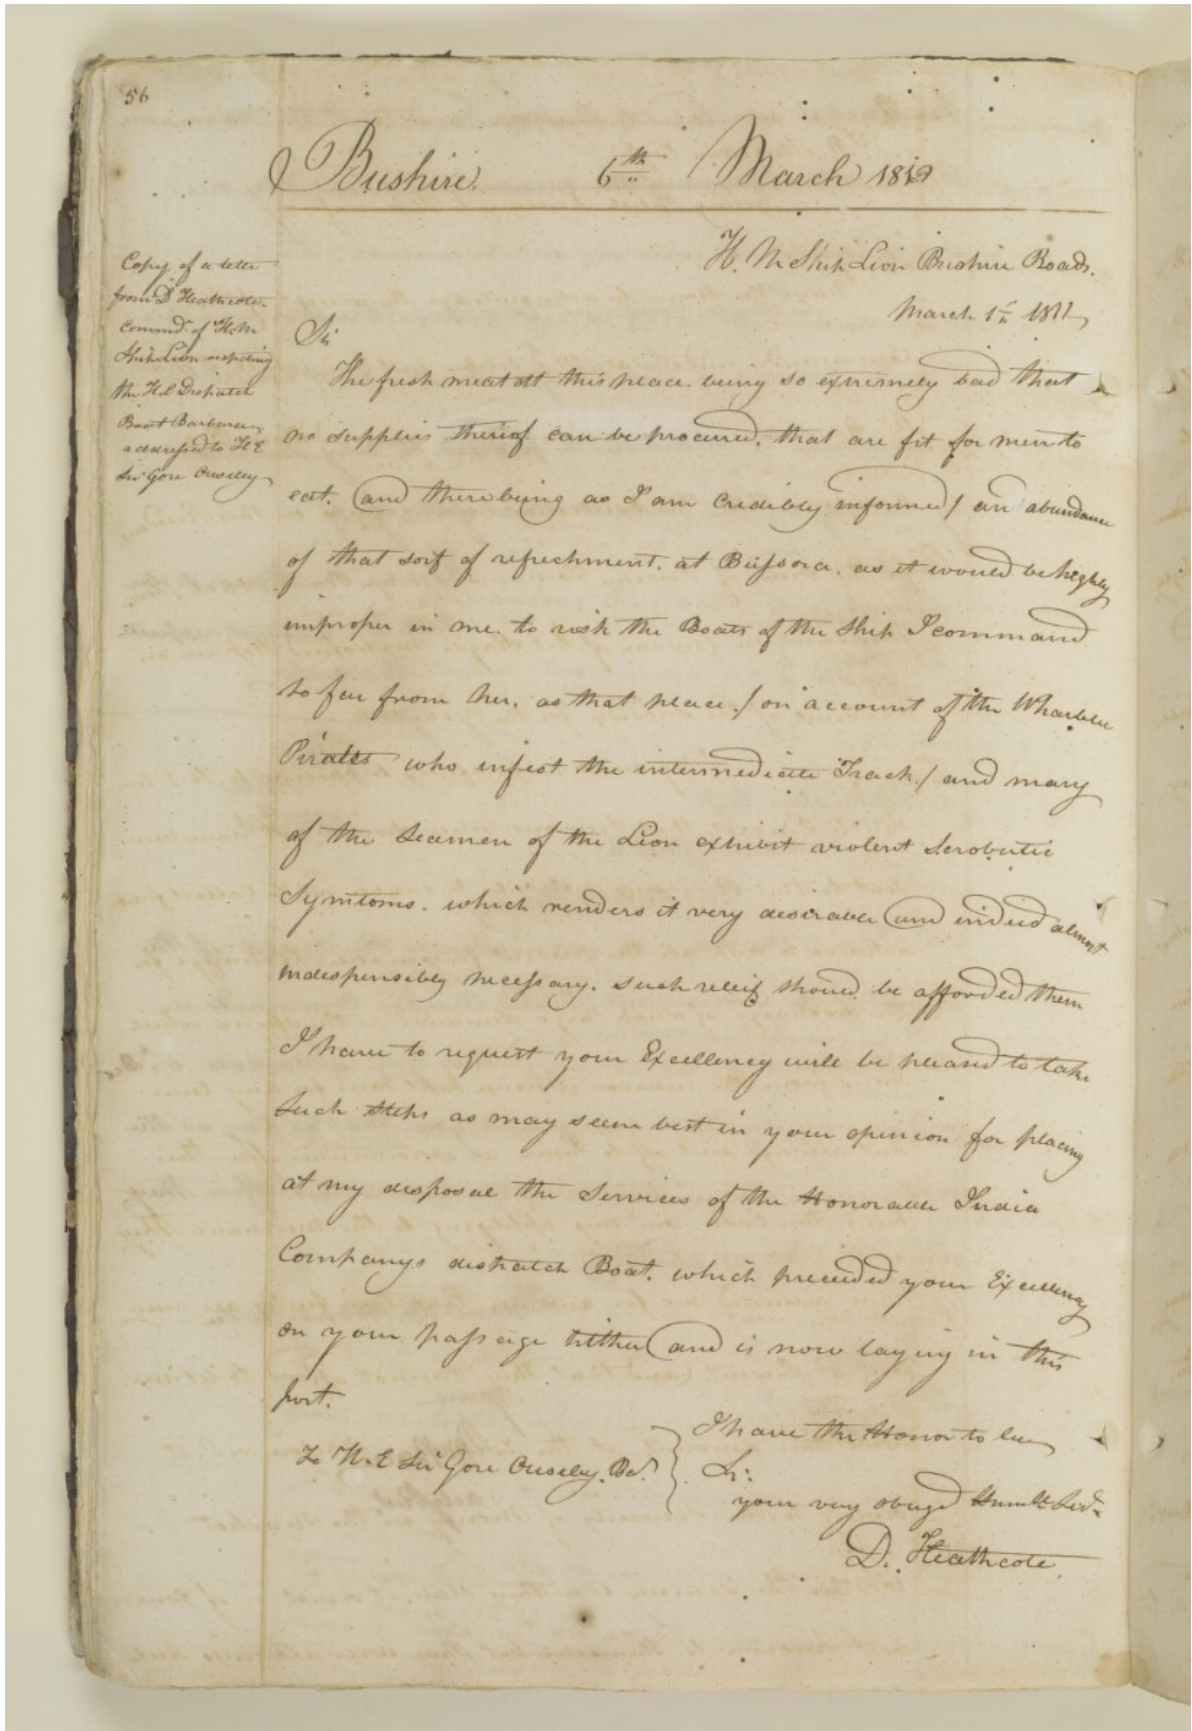 56
Bushire. 6th March 181
H. M Ship Lion Bushire Roads.
March 1st 1811
Copy of a letter
from D Heathcote
Commdr. of H. M
Ship Lion respecting
the H. C Dispatch
Boat
addressed to H E
Sir Gore Ouseley
Sir
The fresh meat att this place. being so extremely bad that
no supplies thereof can be procured. that are fit for men to
eat. (and there being as I am credibly informed / an abundance
of that sort of refreshment. at Bussora. as it would be highly
improper in me. to risk the Boats of the Ship I command
so far from her. as that place. / on account of the
Pirates who infest the intermediate Track. / and many
of the Seamen of the Lion exhibit violent Scrobutic
Symtoms. which renders it very desirable (and indeed almost
indespensibly necessary. such relief should be afforded them
I have to request your Excellency will be pleased to take
such steps as may seem best in your opinion for placing
at my disposal the Services of the Honorable India
Companys dispatch Boat. which preceeded your Excellency
on your passage hither (and is now laying in this
port.
I have the Honor to be
To H. E Sir Gore Ouseley. Bt. } Sir:
your very obliged Humble Servt.
D. Heathcote.